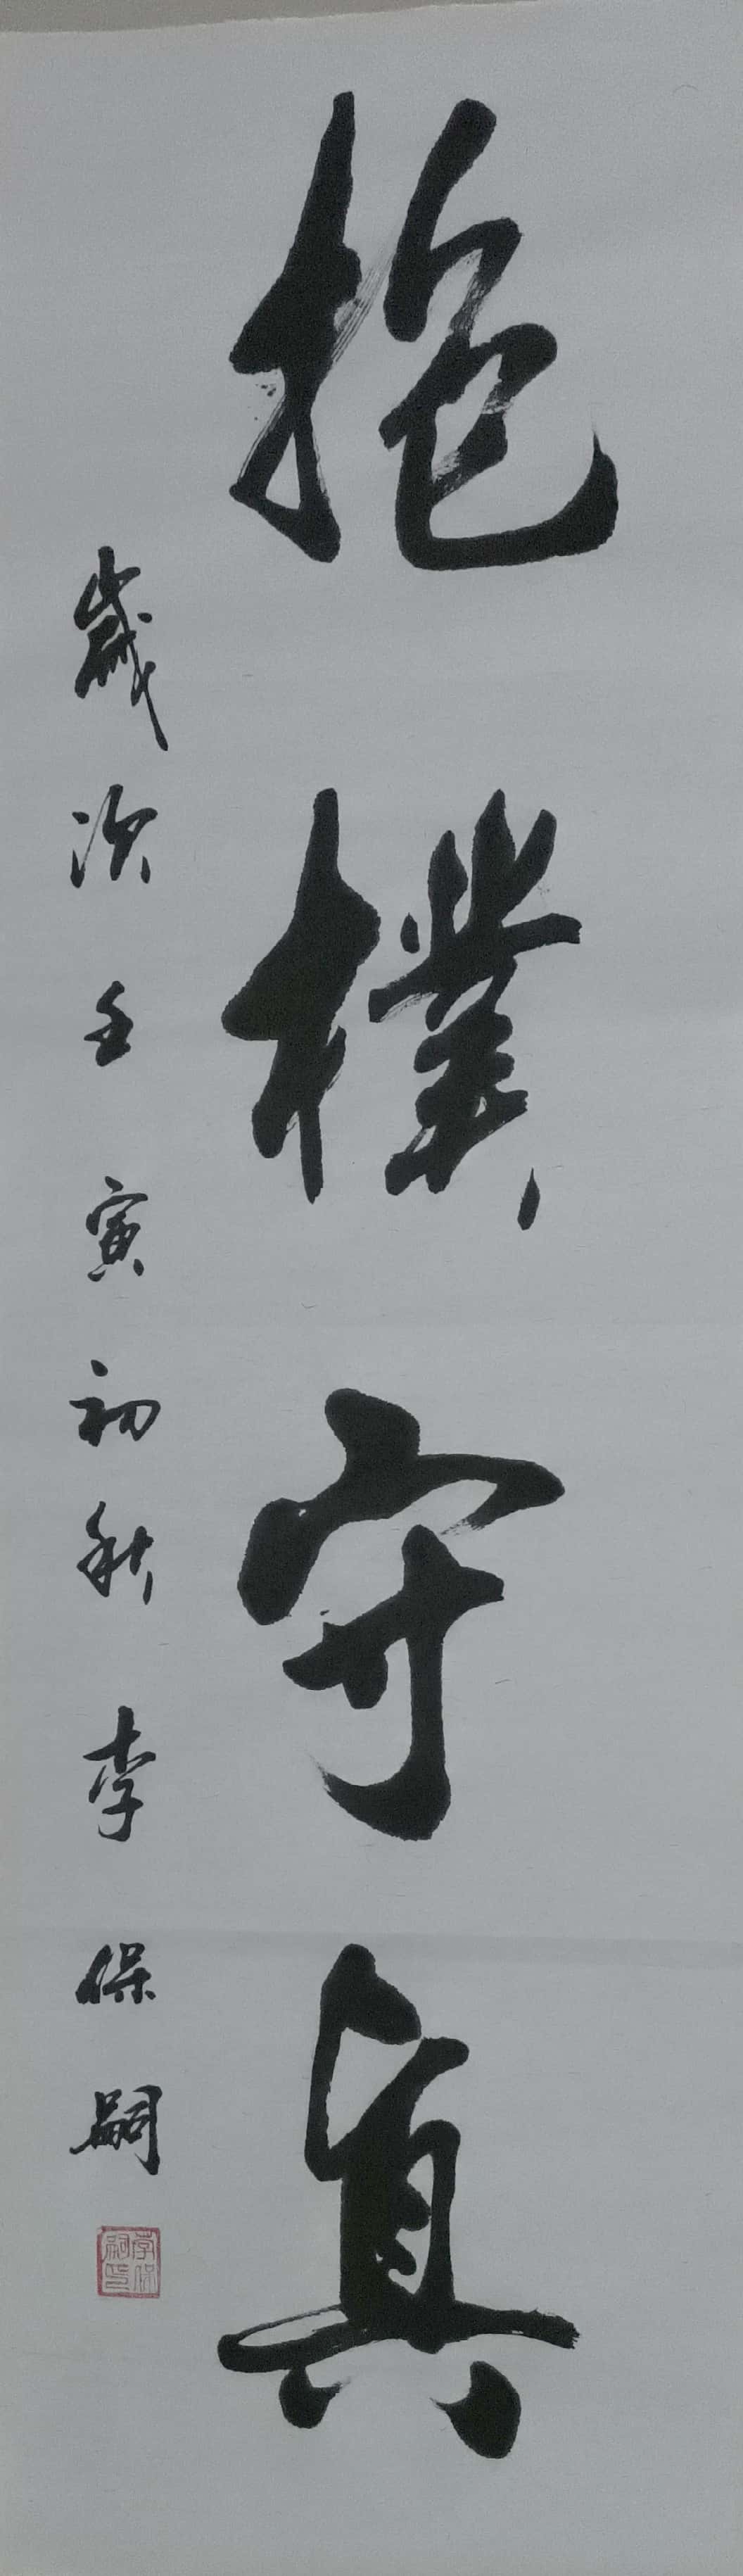 抱樸守真
歲次壬寅初秋李保嗣
李保嗣印